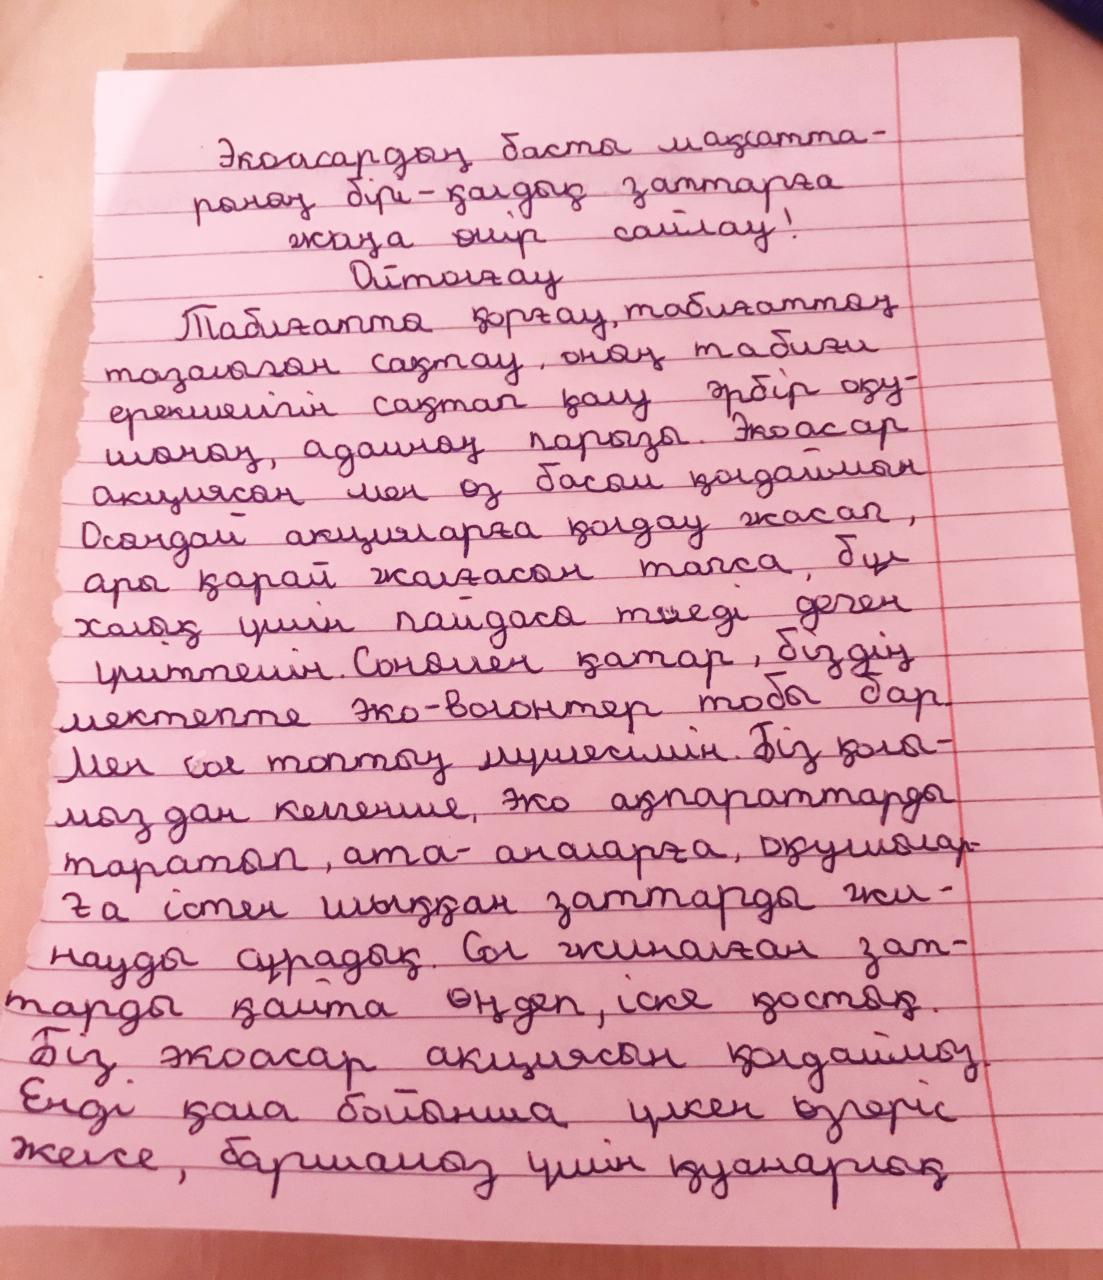 Экоасардың басты мақсатта-
рының бірі-қалдық заттарға
жаңа өмір сыйлау!
Ойтолғау
Табиғатты қорғау, табиғаттың
тазалығын сақтау, оның табиғи
ерекшелігін сақтап қалу әрбір оқу-
шының, адамның парызы. Экоасар
акциясын мен өз басым қолдаймын
Осындай акцияларға қолдау жасап,
ары қарай жалғасын тапса, бұл
халық үшін пайдасы тиеді деген
үміттемін. Сонымен қатар, біздің
мектепте эко-волонтер тобы бар.
Мен сол топтың мүшесімін. Біз қолы-
мыздан келгенше, эко ақпараттарды
таратып, ата-аналарға, оқушылар-
ға істен шыққан заттарды жи-
науды сұрадық. Сол жиналған зат-
тарды қайта өңдеп, іске қостық.
Біз экоасар акциясын қолдаймыз.
Енді қала бойынша үлкен өзгеріс
келсе, баршамыз үшін қуанарлық